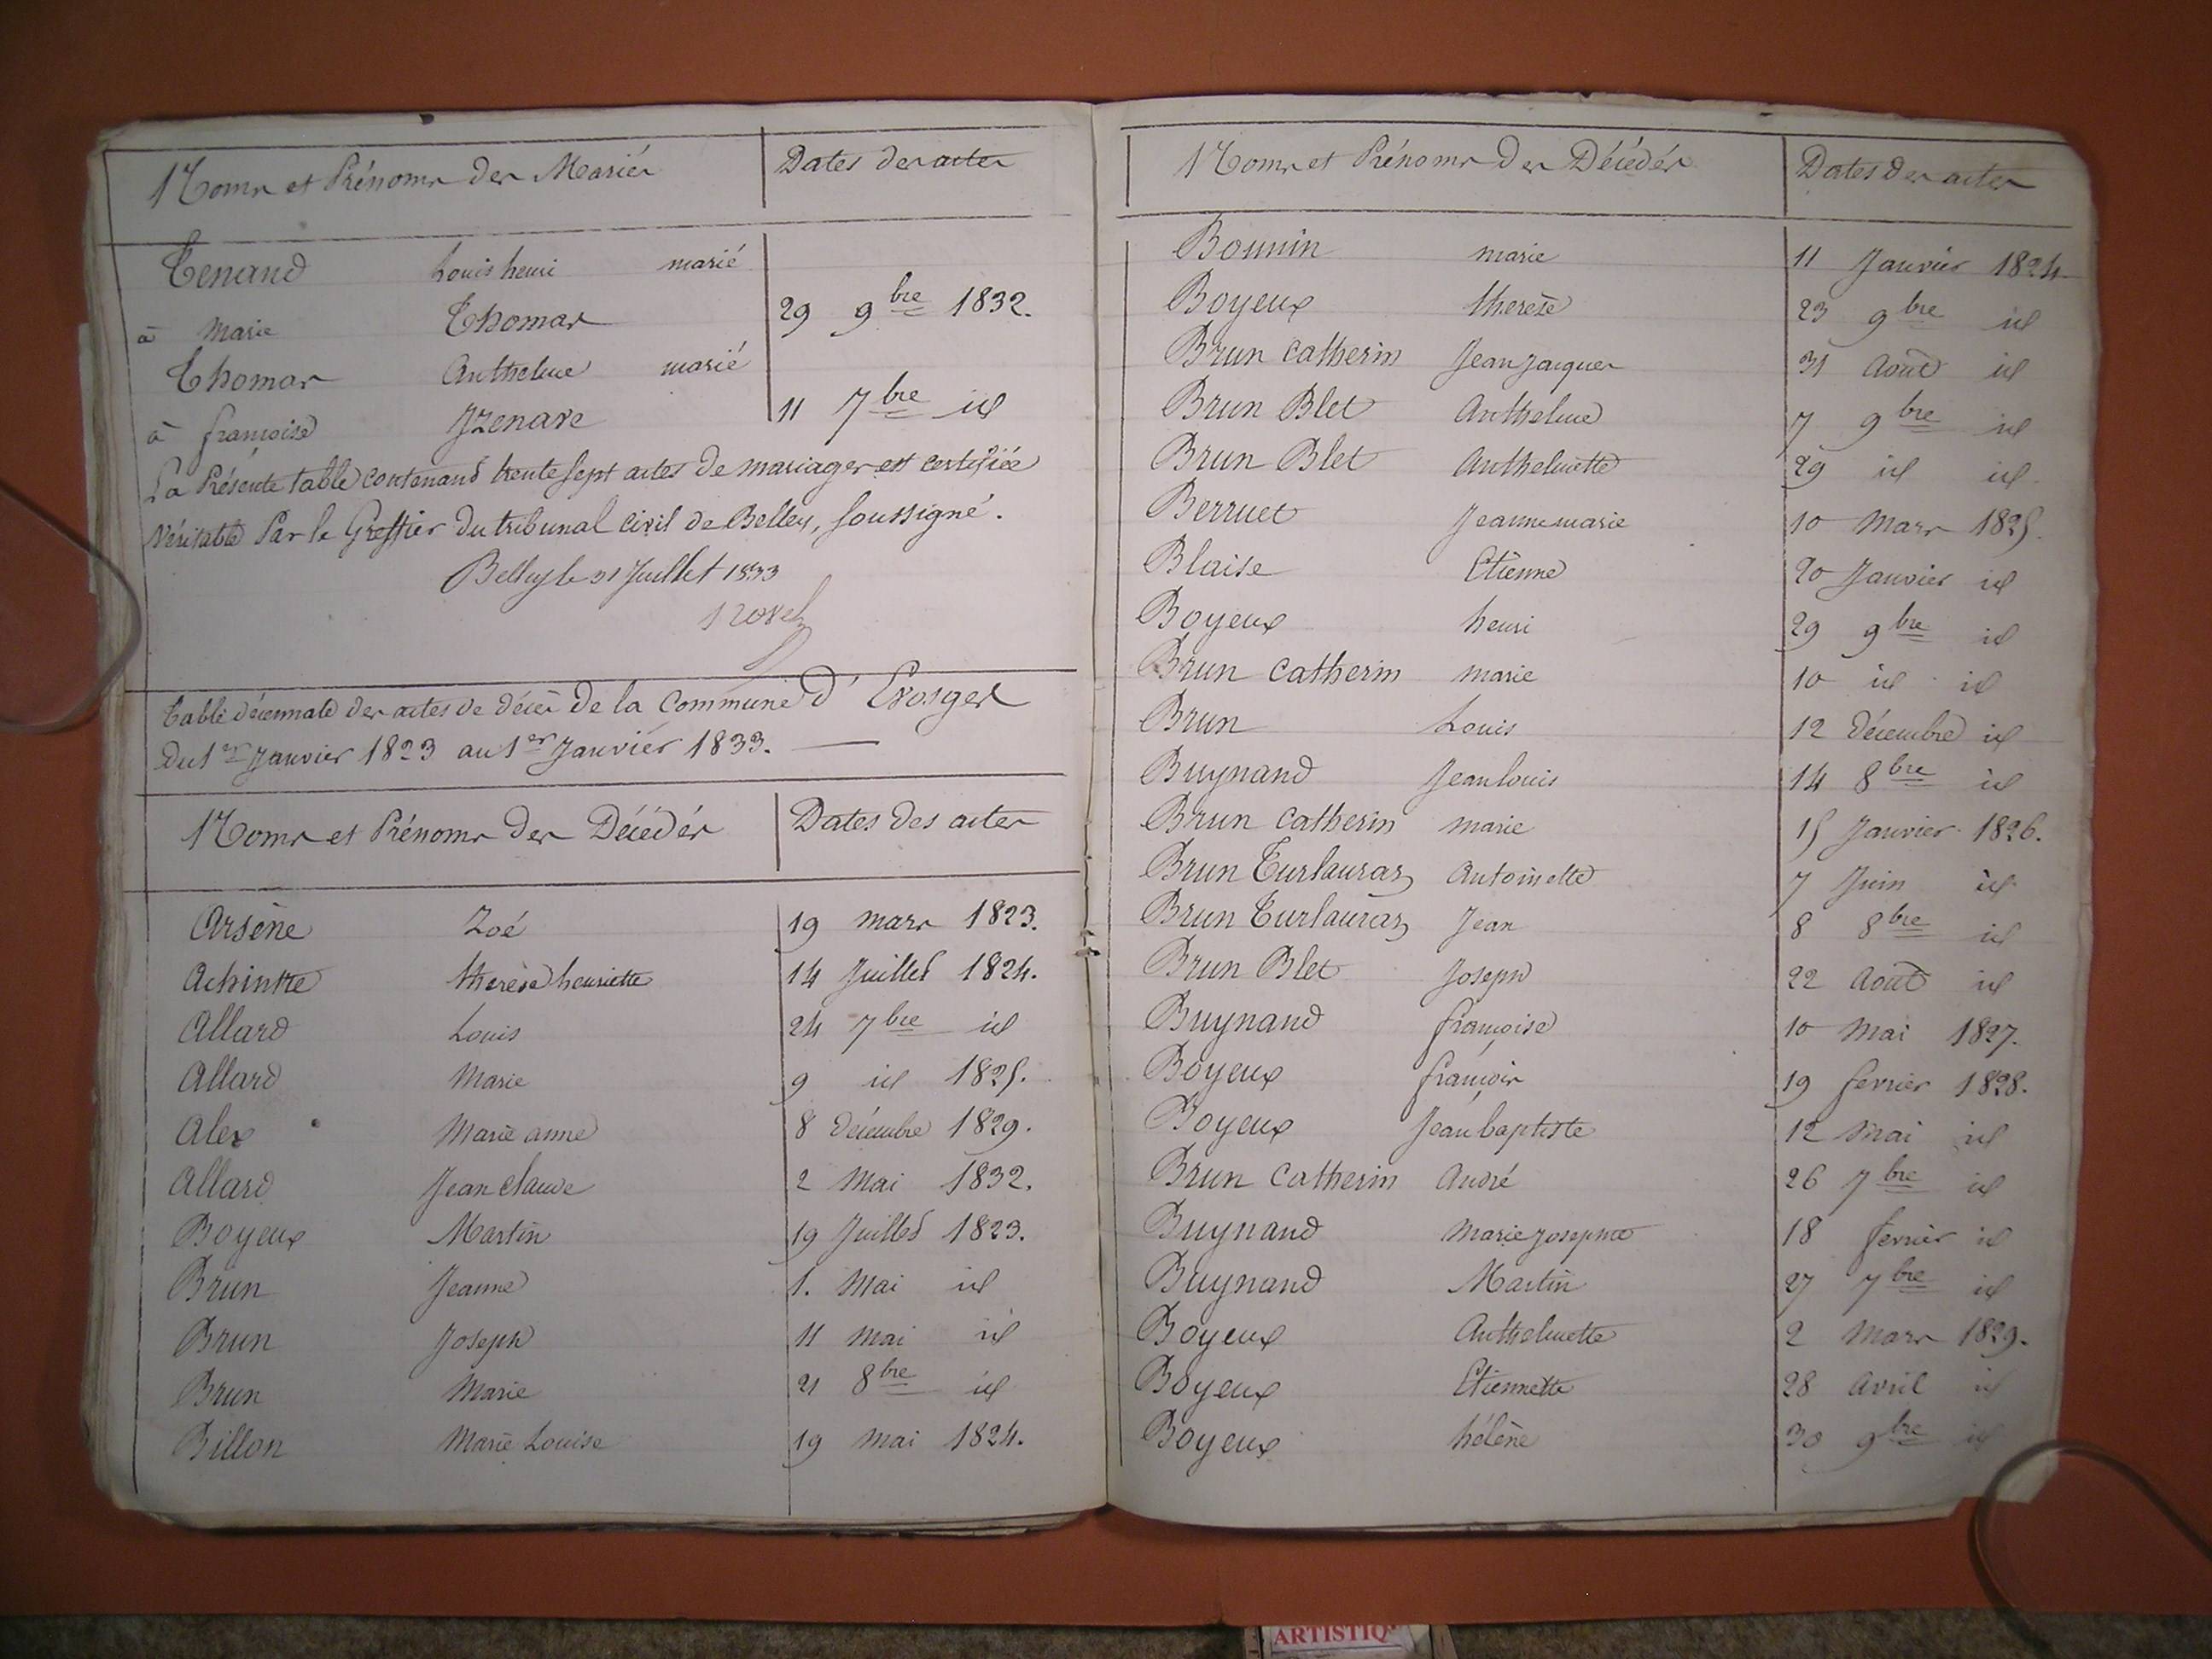 Noms et Prénoms des Mariés Dates des actes
Tenand Louis henri marié
à Marie Thomas 29 9bre 1832.
Thomas Anthelme marié
à françoise Jzenave 11 7bre id
La Présente table contenand trente sept actes de mariages est certifiée
Véritable Par le Greffier du tribunal civil de Belley, soussigné.
Belley le 31 Juillet 1833
Table décennale des actes de décès de la Commune d'Evosges
Du 1er Janvier 1823 au 1er Janvier 1833.
Noms et Prénoms des Décédés Dates des actes
Arsène Zoé 19 mars 1823.
Achintre therèse henriette 14 Juillet 1824.
Allard Louis 24 7bre id
Allard Marie 9 id 1825.
Alex Marie anne 8 décembre 1829.
Allard Jean claude 2 Mai 1832.
Boyeux Martin 19 Juillet 1823.
Brun Jeanne 1. Mai id
Brun Joseph 11 mai id
Brun Marie 21 8bre id
Billon Marie Louise 19 mai 1824.
Noms et Prénoms des Décédés Dates des actes
Bonnin marie 11 Janvier 1824
Boyeux therèse 23 9bre id
Brun Catherin Jean Jacques 31 Août id
Brun Blet Anthelme 7 9bre id
Brun Blet Anthelmette 29 id id.
Berruet Jeanne marie 10 Mars 1825.
Blaise Etienne 20 Janvier id
Boyeux henri 29 9bre id
Brun Catherin marie 10 id id
Brun Louis 12 décembre id
Buynand Jean louis 14 8bre id
Brun Catherin marie 15 Janvier 1826.
Brun Turlauraz Antoinette 7 Juin id
Brun Turlauraz Jean 8 8bre id
Brun Blet Joseph 22 Août id
Buynand françoise 10 Mai 1827.
Boyeux françois 19 fevrier 1828.
Boyeux Jean baptiste 12 Mai id
Brun Catherin André 26 7bre id
Buynand Marie Josephte 18 fevrier id
Buynand Martin 27 7bre id
Boyeux Anthelmette 2 Mars 1829.
Boyeux Etiennette 28 Avril id
Boyeux hélène 30 9bre id
ARTISTIQ